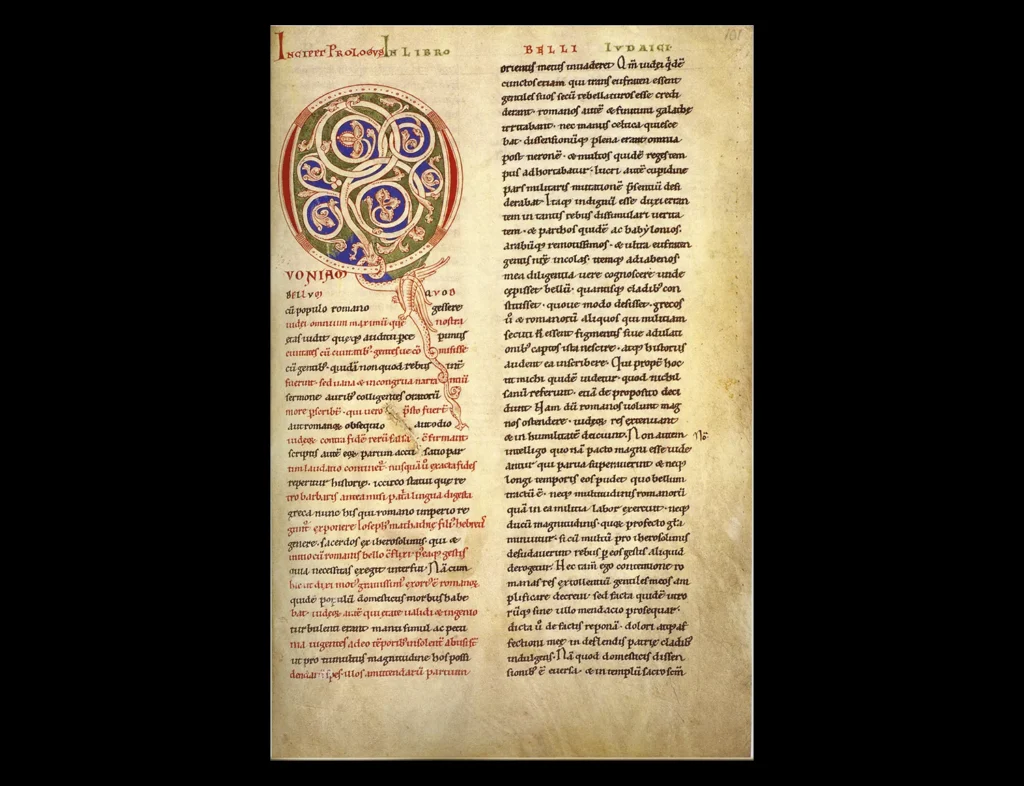 INCIPIT PROLOGVS IN LIBRO
QVONIAM
BELLVM QVOD
cū populo romano gessere
iudei omnium maximū que nostra
etas uidit queq; auditu pce pimus
ciuitates cū ciuitatib; gentesue cō misisse
cū gentib; quidā non quod rebus int
fuerint sed uana & incongrua narra tiū
sermone aurib; colligentes oratorū
more pscribē qui uero psto fuerē
aut romanę obsequio aut odio
iudeoꝝ contra fidē rerū falsa cfirmant
scriptis autē eoꝝ partim accu satio par
tim laudatio continet nusquā ū exacta fides
reperitur historię iccirco statui que re
tro barbaris antea misi patria lingua digesta
greca nunc his qui romano imperio re
gunt exponere Ioseph; mathathię fili; hebreus
genere sacerdos ex iherosolimis qui &
initio cū romanis bello cflixi posteaq; gestis
quia necessitas exegit interfui Nā cum
hic ut dixi mot; grauissim; exort; ē romanoꝝ
quidē populū domesticus morbus habe
bat iudeoꝝ autē qui etate ualidi & ingenio
turbulenti erant manu simul ac pecu
nia uigentes adeo tēporib; insolent abusi st
ut pro tumultus magnitudine hos possi
dendarū spes illos amittendarū partium
BELLI IVDAICI
orientis metus inuaderet Qm iudei qdē
cunctos etiam qui trans eufraten essent
gentiles suos secū rebellaturos esse credi
derant romanos autē & finitimi galathę
irritabant nec manus celtica quiesce
bat dissensionūq; plena erant omnia
post neronē & multos quidē reges tem
pus adhortabatur lucri autē cupidine
pars militaris mutationē psentiū desi
derabat Itaq; indignū esse duxi erran
tem in tantis rebus dissimulari uerita
tem & parthos quidē ac babylonios
arabūq; remotissimos & ultra eufraten
gentis nrę incolas itemq; adiabenos
mea diligentia uere cognoscere unde
cępisset bellū quantisq; cladib; con
stitisset quoue modo desisset grecos
ū & romanorū aliquos qui militiam
secuti ñ essent figmentis siue adulati
onib; captos ista nescire atq; historias
audent ea inscribere Qui prope hoc
ut michi quidē uidetur quod nichil
sanū referunt etiā de proposito deci
dunt Nam dū romanos uolunt mag
nos ostendere iudeoꝝ res extenuant
& in humilitatē deiciunt Non autem
intelligo quo nā pacto magni esse uide
antur qui parua supauerint & neq;
longi temporis eos pudet quo bellum
tractū ē neq; multitudinis romanorū
quā in ea militia labor exercuit neq;
ducū magnitudinis quoꝝ profecto gła
minuitur si cū multū pro iherosolimis
desudauerint rebus p eos gestis aliquid
derogetur Hec tam ego contentione ro
manas res extollentiū gentiles meos am
plificare decreui sed facta quidē utro
rūq; sine ullo mendacio prosequar
dicta ū de factis reponā dolori atq; af
fectioni meę in deflendis patrię cladib;
indulgens Nā quod domesticis dissen
sionib; ē euersa & in templū sacrosctm